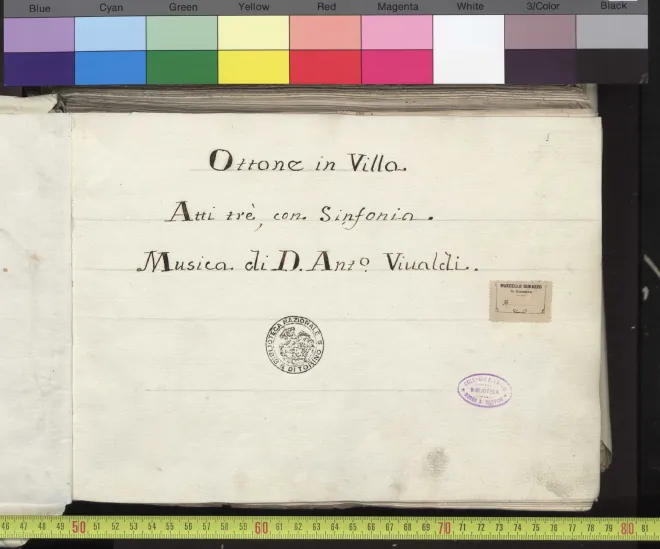 Blue Cyan Green Yellow Red Magenta White 3/Color Black
Ottone in Villa.
Atti trè, con Sinfonia.
Musica di D. Antº Viualdi.
BIBLIOTECA NAZIONALE DI TORINO
BIBLIOTECA
46 47 48 49 50 51 52 53 54 55 56 57 58 59 60 61 62 63 64 65 66 67 68 69 70 71 72 73 74 75 76 77 78 79 80 81